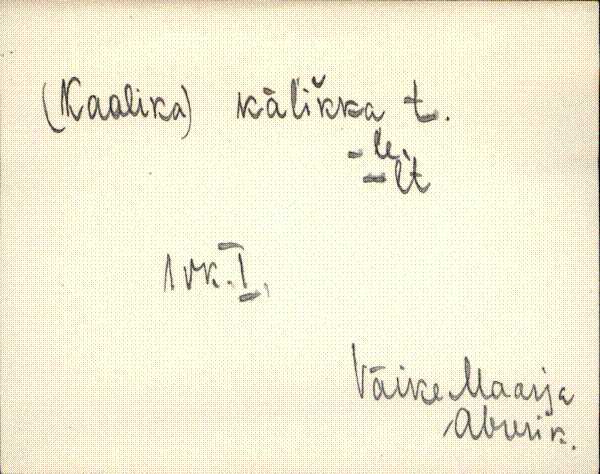 (Kaalika) kàlĭkka t.
-le.
-lt
1 vk. I.
Väike Maarja
Aburik.